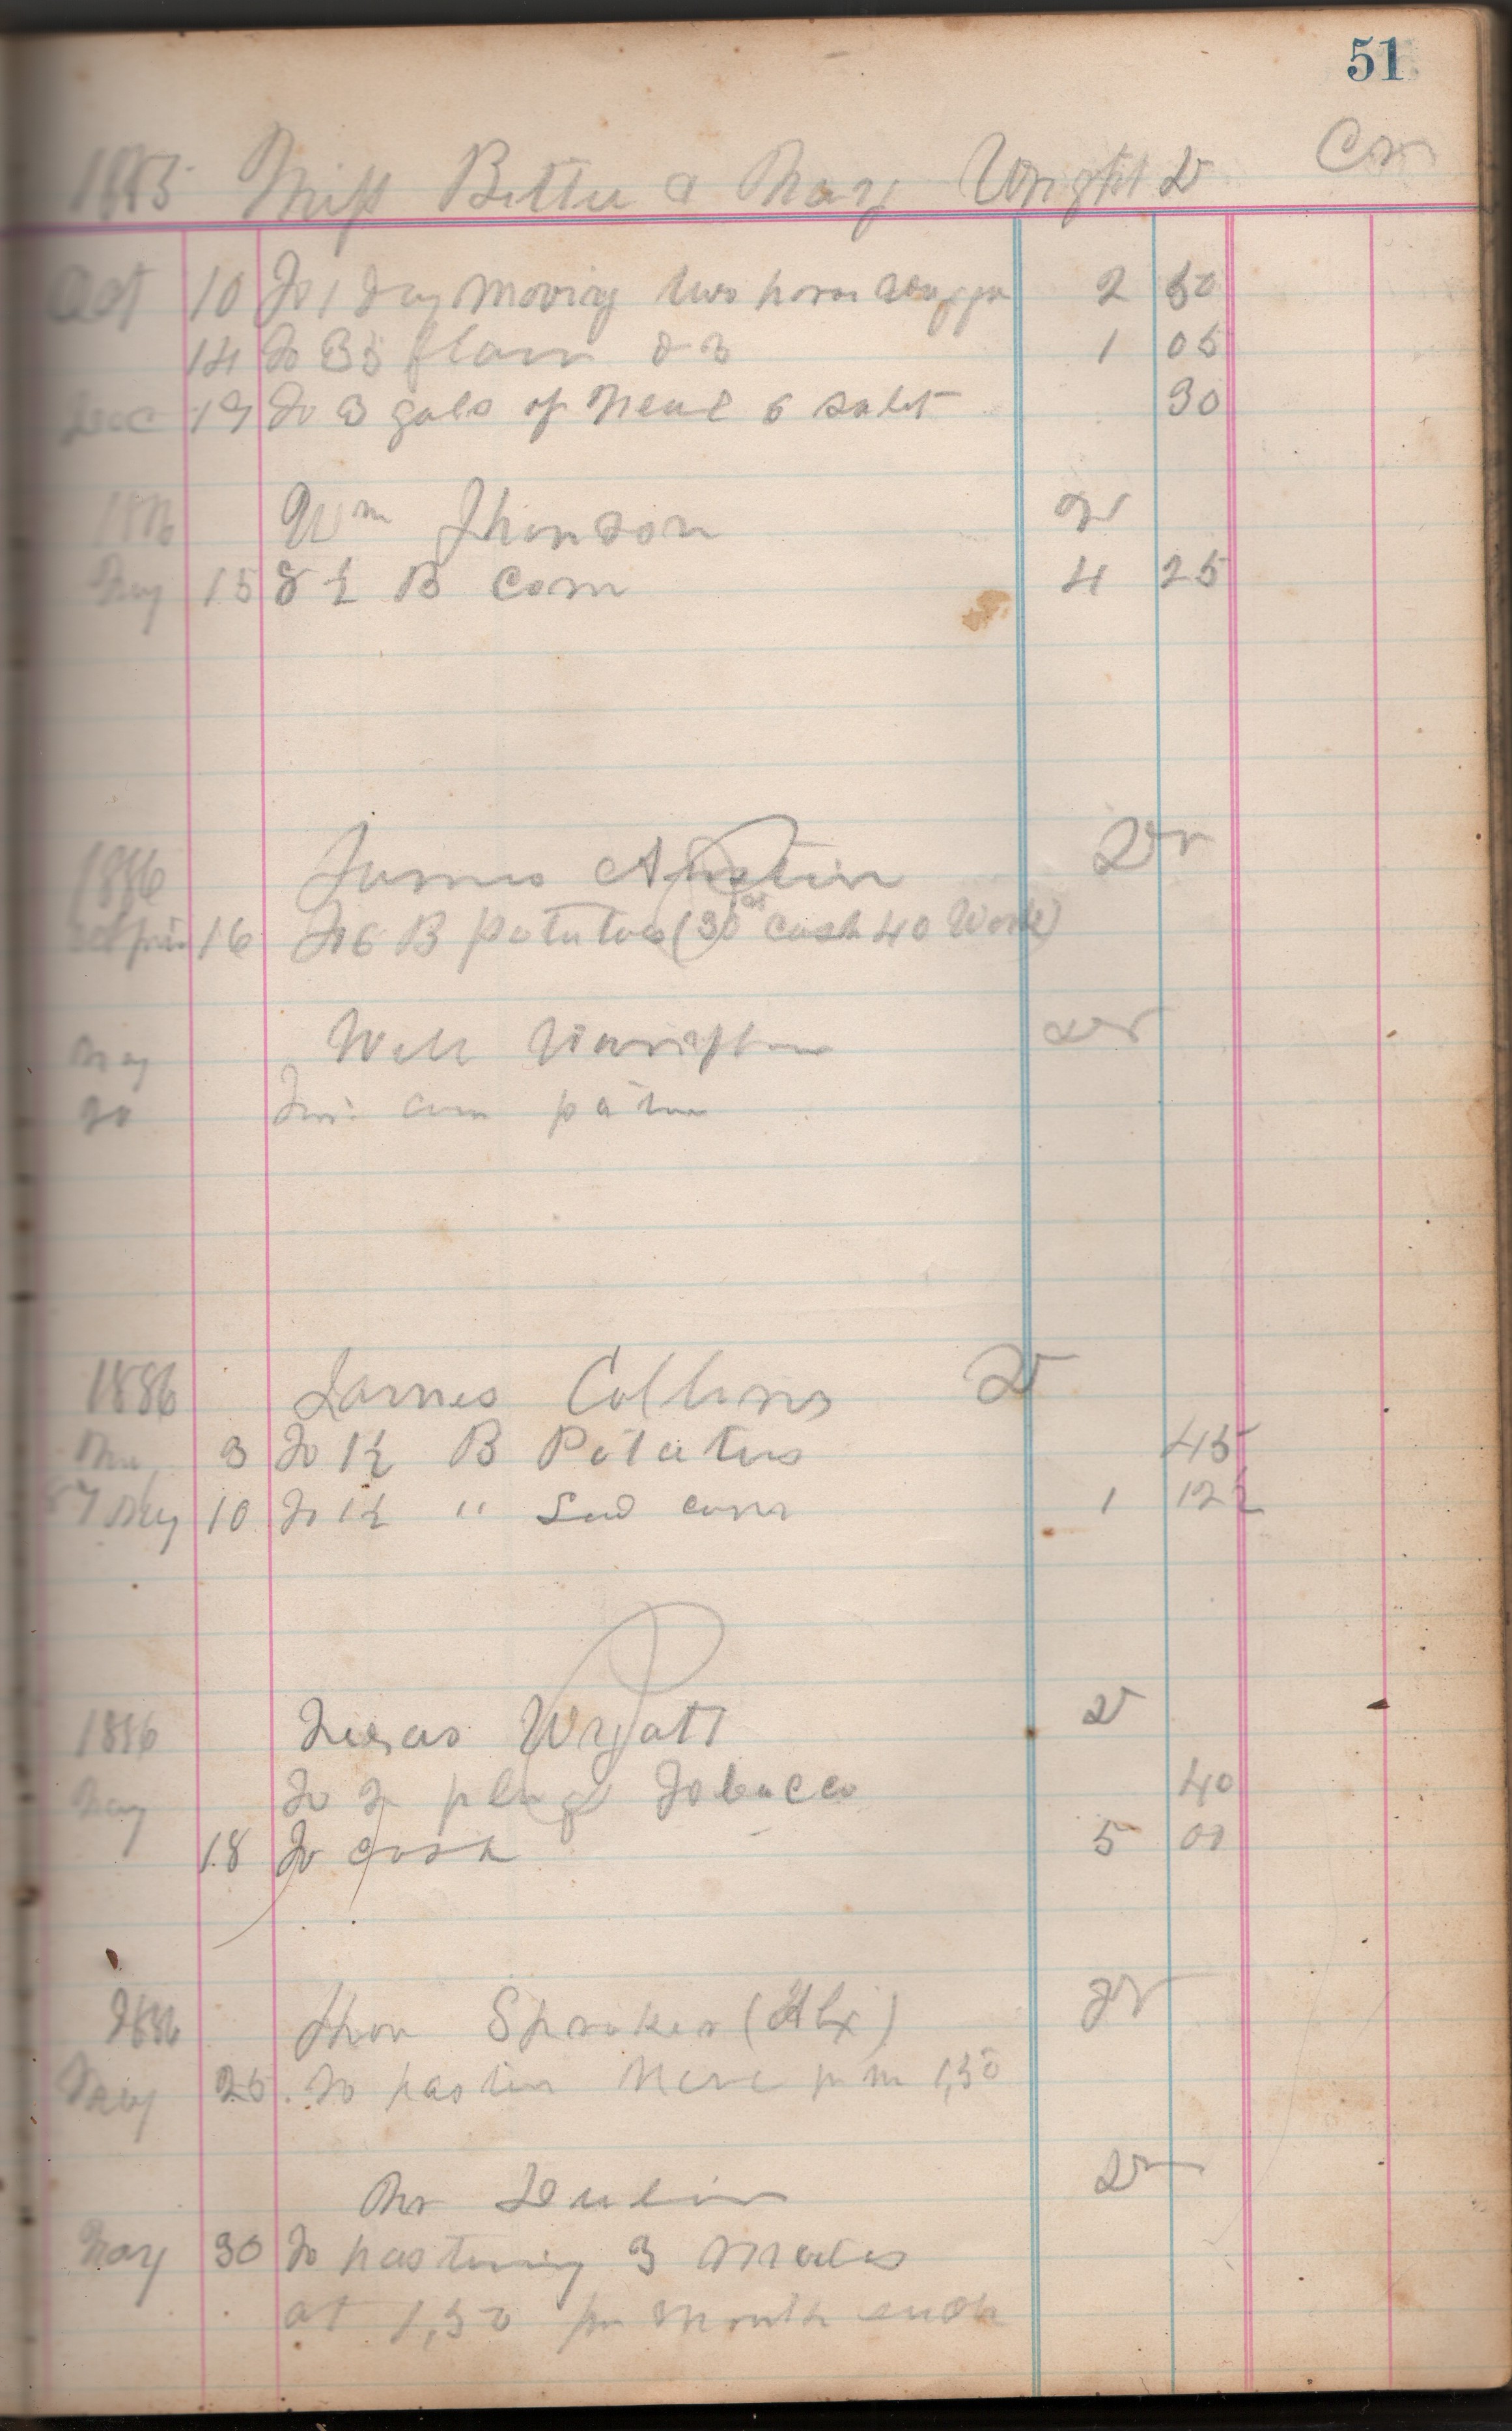 51
1885 Miss Bettie & Mary Wright Dr Cr
Oct 10 To 1 Day moving two horse 2 50
14 To 35 flour @ 3 1 05
Dec 19 To 3 gals of Meal & salt 30
1886 Wm Jhonson Dr
May 15 8 ½ B Corn 4 25
1886 James Austin Dr
16 To 6 B Potatoes (30 cts cash 40 Work)
May Will Dr
20
1886 James Collins Dr
May 3 To 1½ B Potatoes 45
87 May 10 To 1½ " Seed corn 1 12½
1886 Wyatt Dr
May To plug Tobacco 40
18 To cash 5 00
1886 Jhon Spraker (Alx) Dr
May 25 To pastur Mare pr m 1,50
Mr Dr
May 30 To pasturing 3 Mules
at 1,50 pr Month each